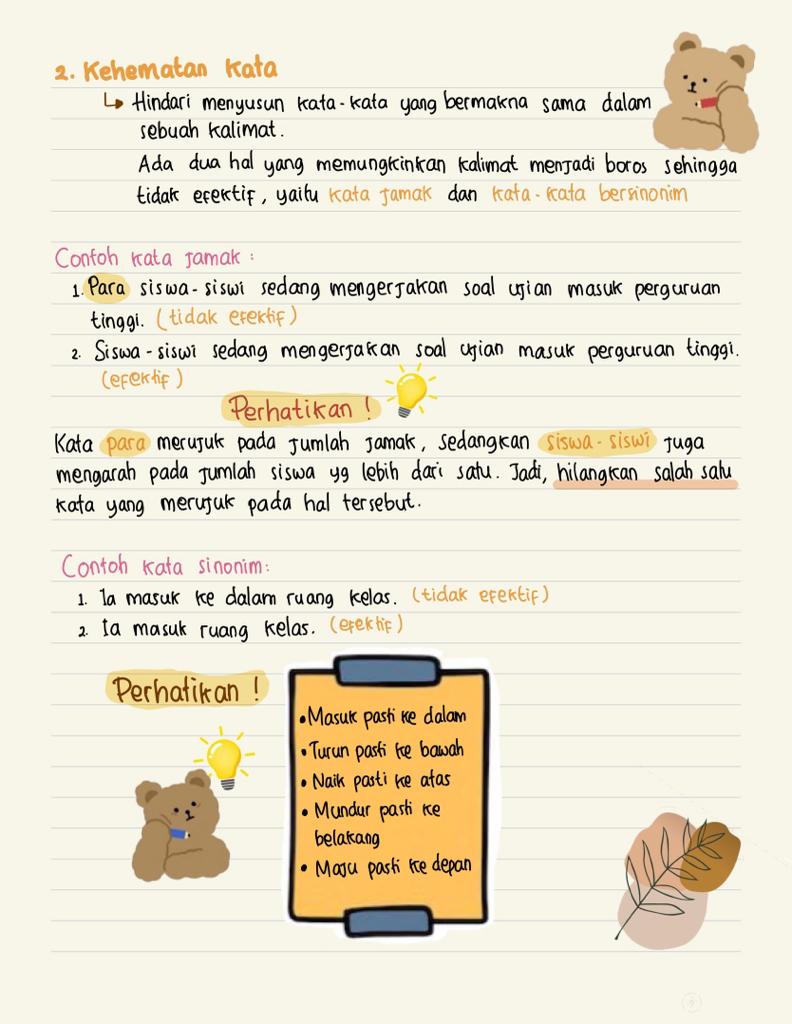 2. Kehematan Kata
↳ Hindari menyusun kata-kata yang bermakna sama dalam
sebuah kalimat.
Ada dua hal yang memungkinkan kalimat menjadi boros sehingga
tidak efektif, yaitu kata jamak dan kata-kata bersinonim
Contoh kata jamak :
1. Para siswa-siswi sedang mengerjakan soal ujian masuk perguruan
tinggi. (tidak efektif)
2. Siswa-siswi sedang mengerjakan soal ujian masuk perguruan tinggi.
(efektif)
Perhatikan !
Kata para merujuk pada jumlah jamak, sedangkan siswa-siswi juga
mengarah pada jumlah siswa yg lebih dari satu. Jadi, hilangkan salah satu
kata yang merujuk pada hal tersebut.
Contoh kata sinonim:
1. Ia masuk ke dalam ruang kelas. (tidak efektif)
2. Ia masuk ruang kelas. (efektif)
Perhatikan !
• Masuk pasti ke dalam
• Turun pasti ke bawah
• Naik pasti ke atas
• Mundur pasti ke
belakang
• Maju pasti ke depan